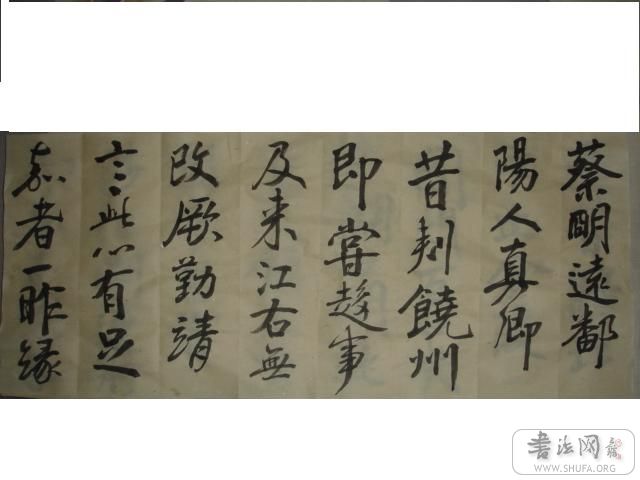 蔡明遠鄱
陽人真卿
昔刺饒州
即嘗趍事
及来江右無
改厥勤靖
言此心有足
嘉者一昨緣
書法网
WWW.SHUFA.ORG